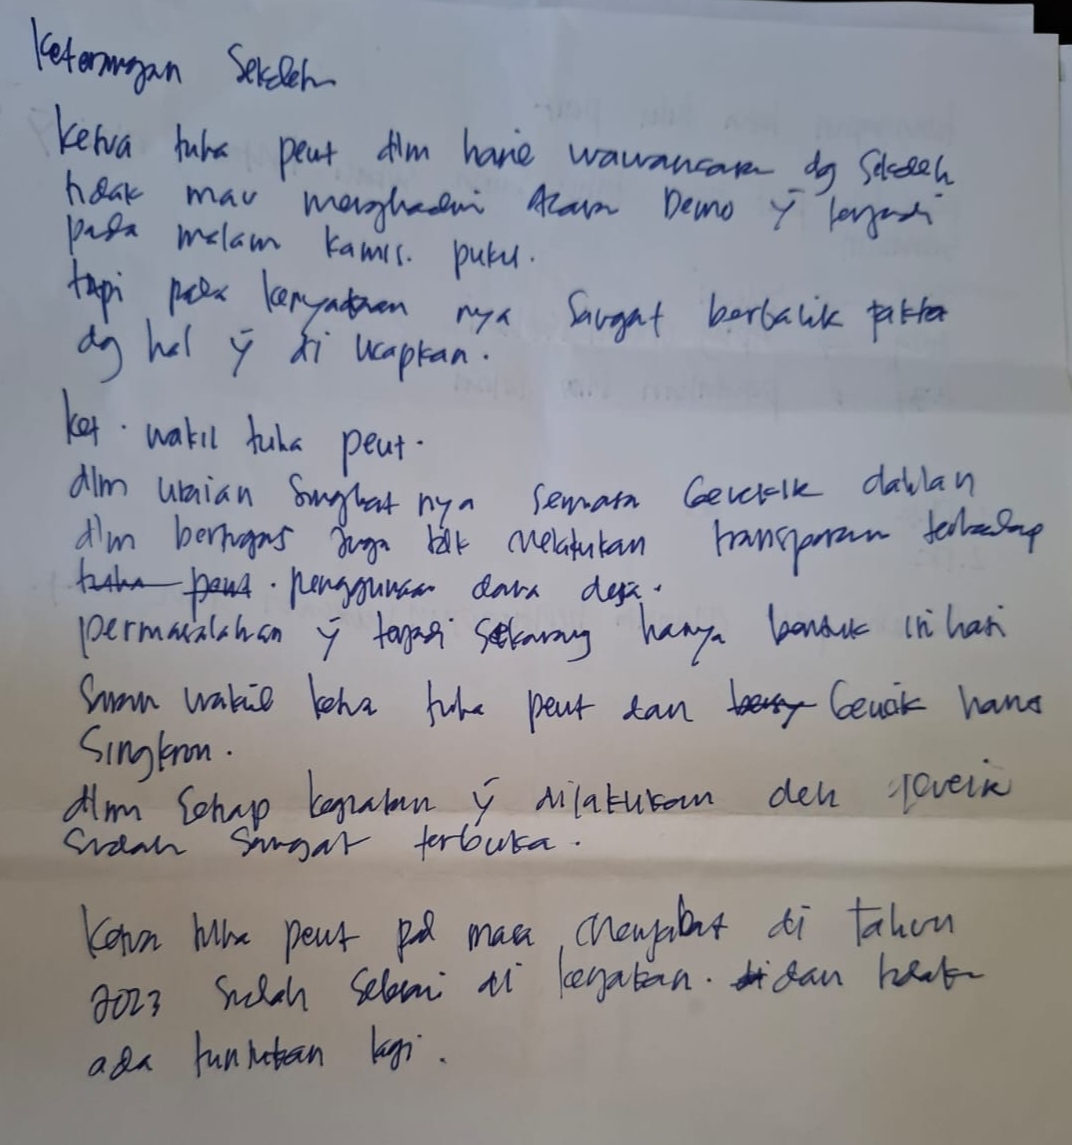 Keterangan Sekdeh
Ketua tuha peut dlm hasil wawancara dg Sekdeh
tidak mau menghadiri Acara Demo ÿ terjadi
pada malam kamis. pukul.
tapi pada kenyataan nya Sangat berbalik fakta
dg hal ÿ di Ucapkan.
Ket. wakil tuha peut.
dlm uraian Singkat nya Semasa Geucik dahlan
dlm bertugas Juga tdk melakukan transparan terhadap
tuha peut. penggunaan dana desa.
permasalahan ÿ terjadi Sekarang hanya bentuk iri hati
wakil ketua tuha peut dan Geucik hana
Singkron.
dlm Setiap kegiatan ÿ dilakukan oleh geucik
Sudah Sangat terbuka.
Ketua tuha peut pd masa menjabat di tahun
2023 Sudah Selesai di kerjakan. dan tidak
ada tuntutan lagi.